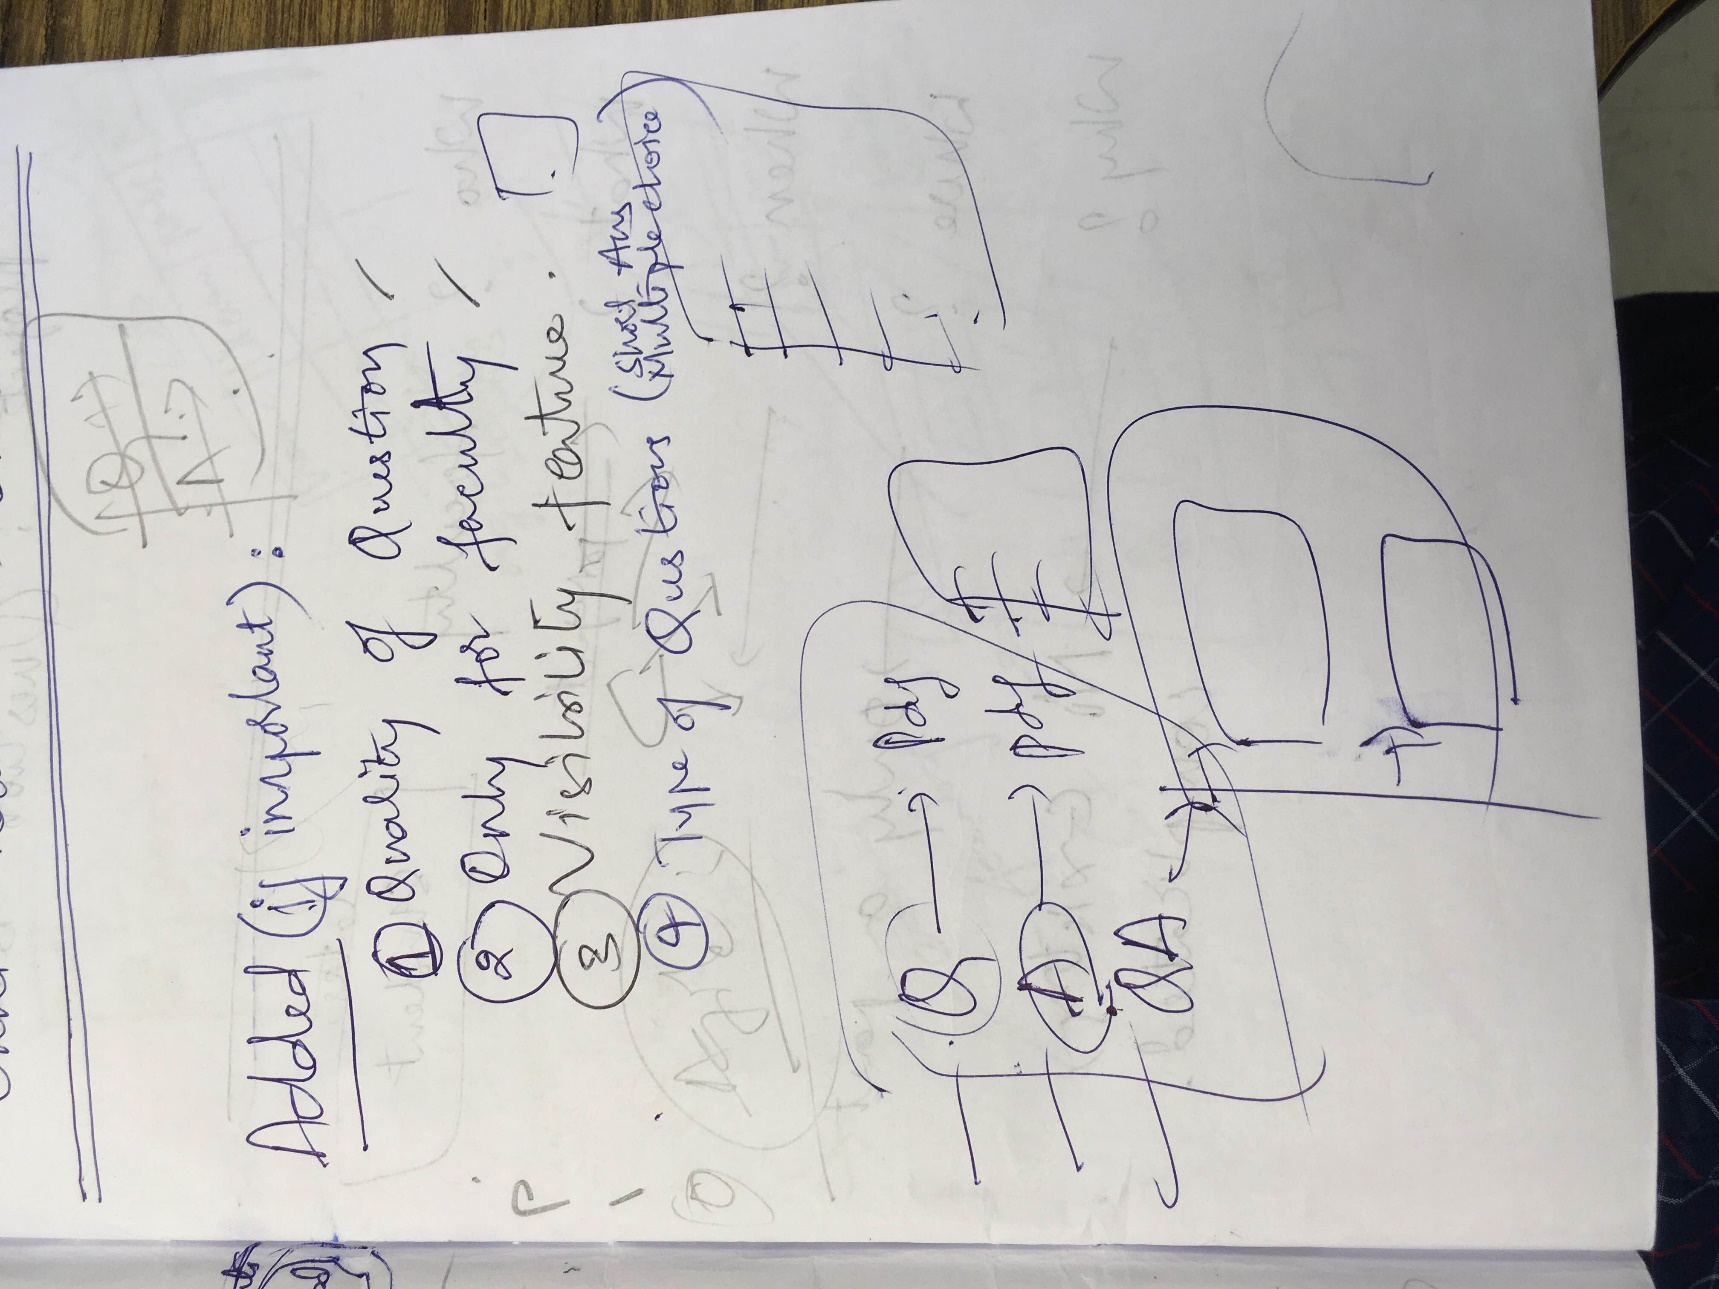 Added (if important):
① Quality of Question
② Only for faculty
③ Visibility feature.
④ Type of Qustions (Short Ans
Multiple choice
Q → pdf
A → pdf
QA
Q
A